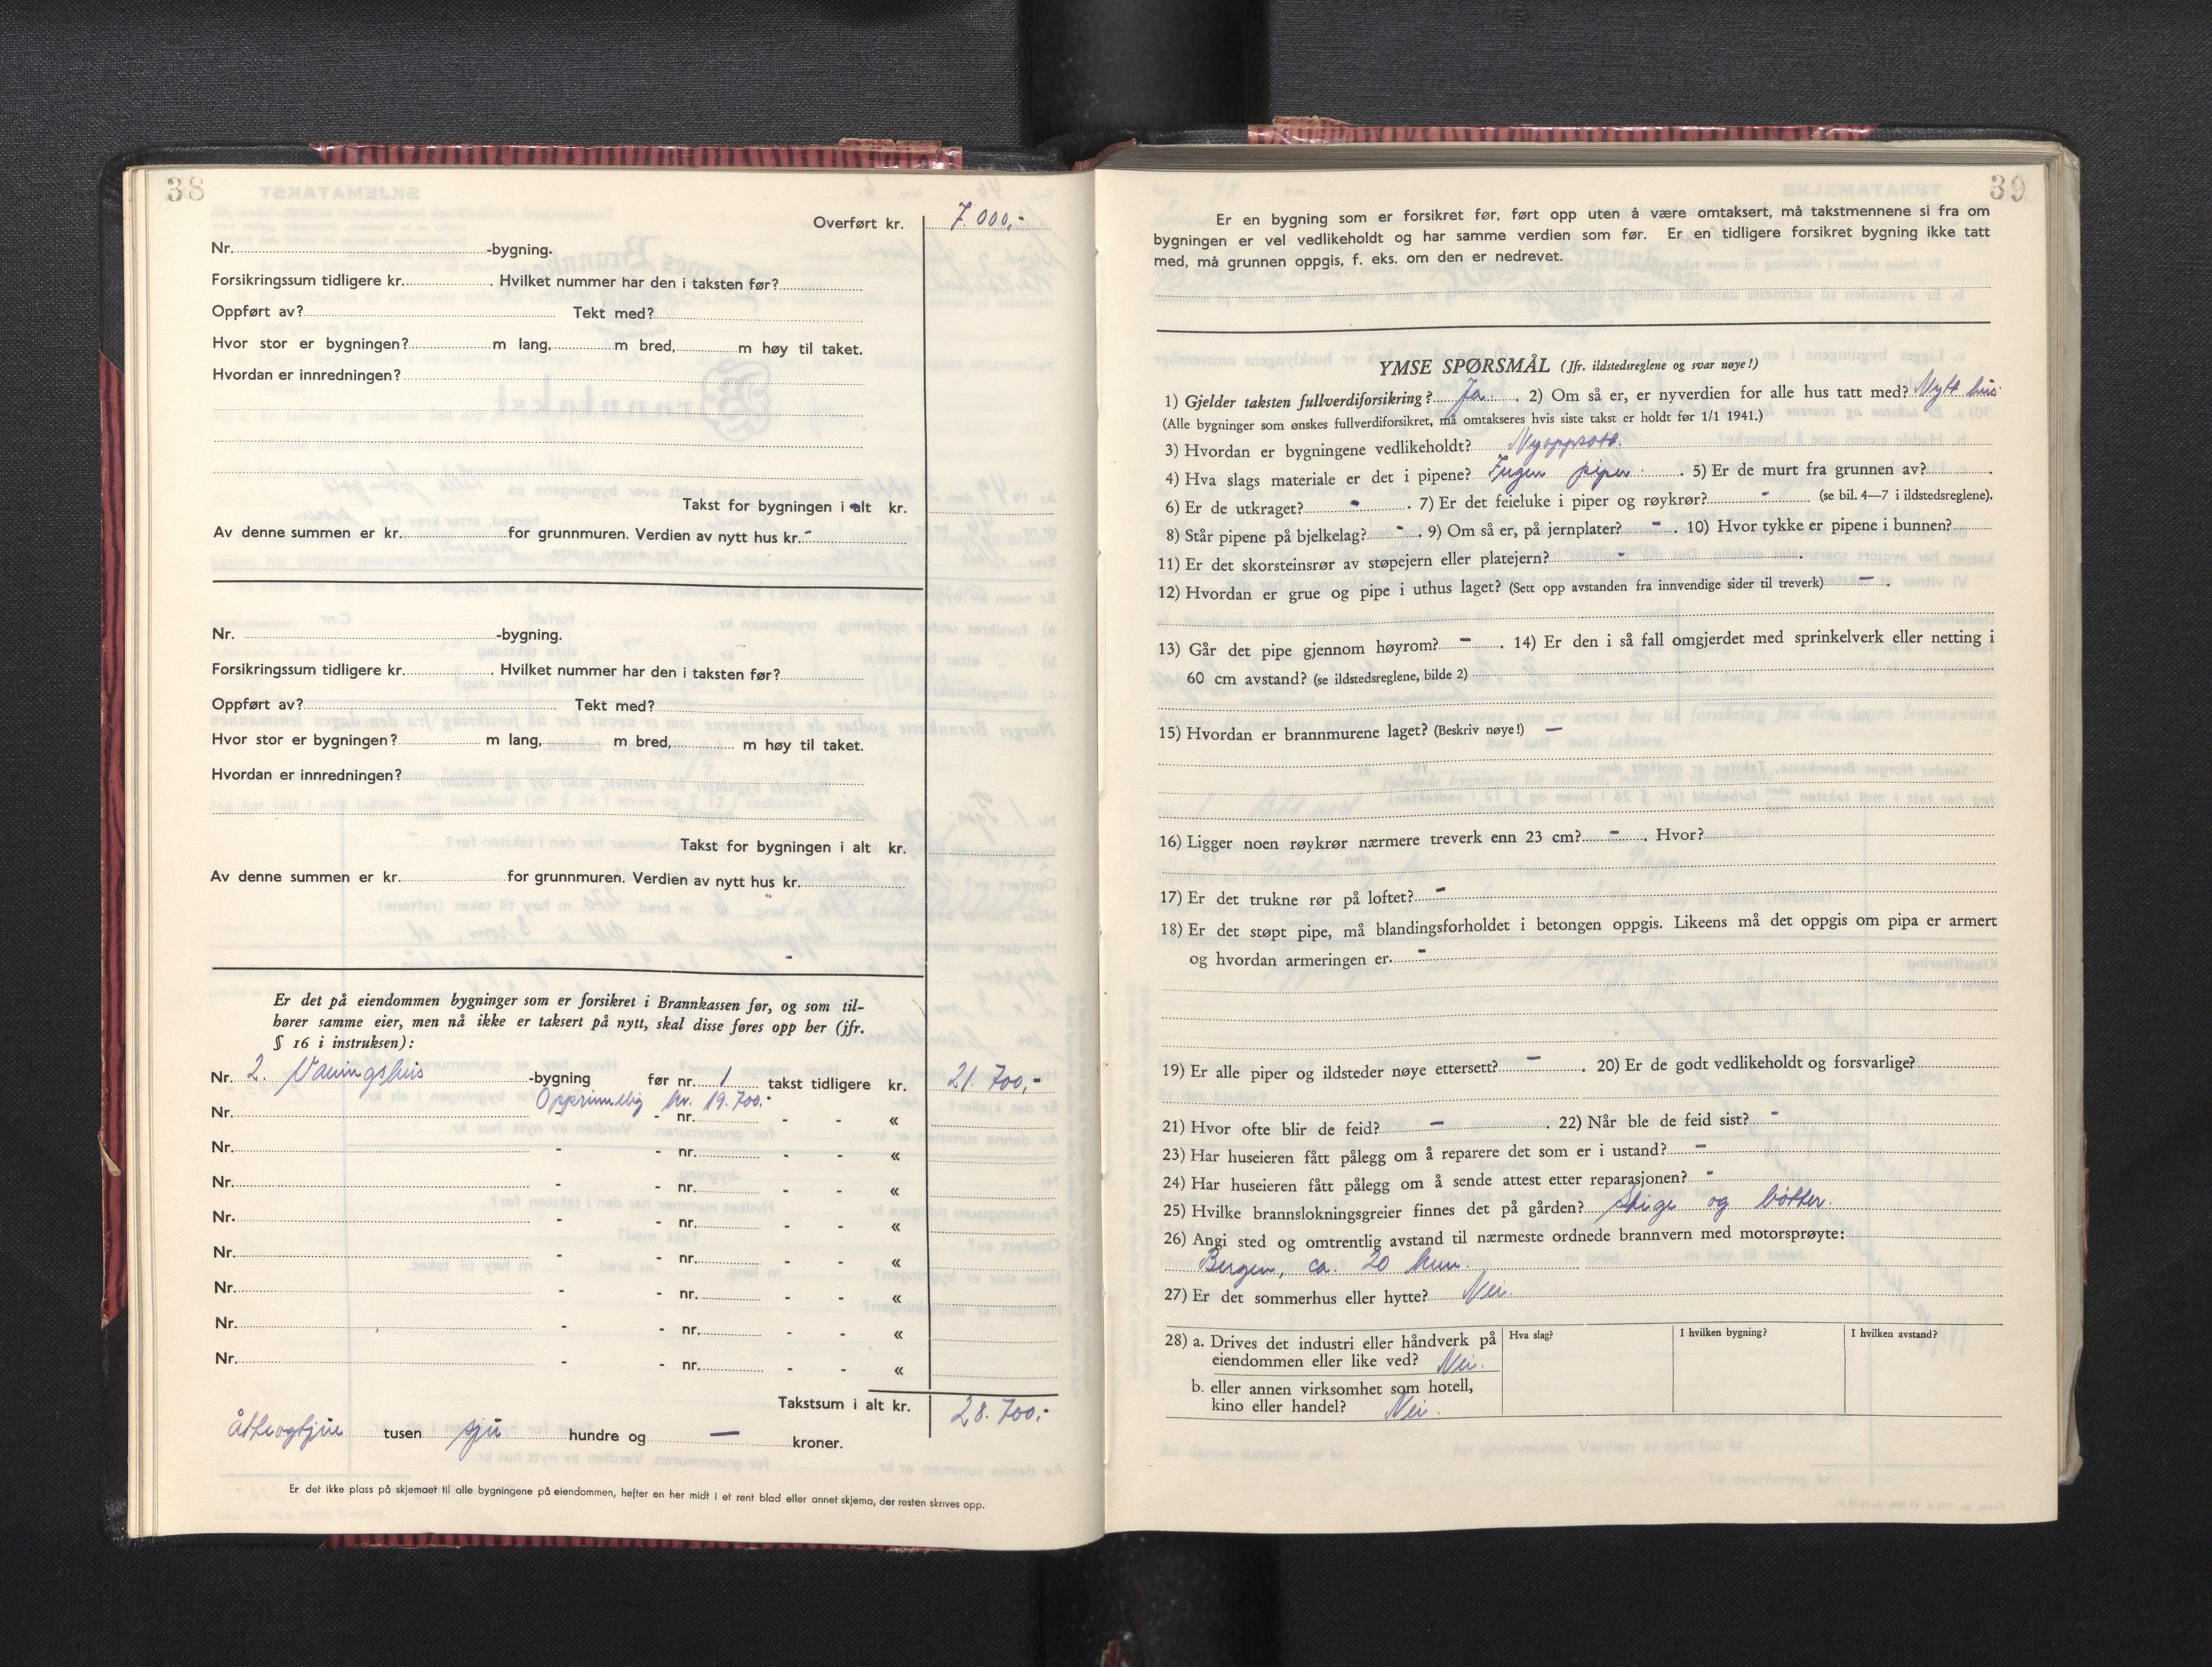 38
Overført kr. 7.000,-
Nr. -bygning.
Forsikringssum tidligere kr. . Hvilket nummer har den i taksten før?
Oppført av? Tekt med?
Hvor stor er bygningen? m lang, m bred, m høy til taket.
Hvordan er innredningen?
Takst for bygningen i alt kr.
Av denne summen er kr. for grunnmuren. Verdien av nytt hus kr. -
Nr. -bygning.
Forsikringssum tidligere kr. . Hvilket nummer har den i taksten før?
Oppført av? Tekt med?
Hvor stor er bygningen? m lang, m bred, m høy til taket.
Hvordan er innredningen?
Takst for bygningen i alt kr.
Av denne summen er kr. for grunnmuren. Verdien av nytt hus kr.
Er det på eiendommen bygninger som er forsikret i Brannkassen før, og som til-
hører samme eier, men nå ikke er taksert på nytt, skal disse føres opp her (jfr.
§ 16 i instruksen):
Nr. 2. Vaaningshus -bygning før nr. 1 takst tidligere kr. 21.700,-
Opprinnelig kr. 19.700.-
Nr. - - nr. - - «
Nr. - - nr. - - «
Nr. - - nr. - - «
Nr. - - nr. - - «
Nr. - - nr. - - «
Nr. - - nr. - - «
Nr. - - nr. - - «
Nr. - - nr. - - «
Takstsum i alt kr. 28.700,-
Åtteogtjue tusen sju hundre og — kroner.
Er det ikke plass på skjemaet til alle bygningene på eiendommen, hefter en her midt i et rent blad eller annet skjema, der resten skrives opp.
39
Er en bygning som er forsikret før, ført opp uten å være omtaksert, må takstmennene si fra om
bygningen er vel vedlikeholdt og har samme verdien som før. Er en tidligere forsikret bygning ikke tatt
med, må grunnen oppgis, f. eks. om den er nedrevet.
YMSE SPØRSMÅL (Jfr. ildstedsreglene og svar nøye!)
1) Gjelder taksten fullverdiforsikring? Ja. . 2) Om så er, er nyverdien for alle hus tatt med? Nytt hus
(Alle bygninger som ønskes fullverdiforsikret, må omtakseres hvis siste takst er holdt før 1/1 1941.)
3) Hvordan er bygningene vedlikeholdt? Nyoppsatt.
4) Hva slags materiale er det i pipene? Ingen piper . 5) Er de murt fra grunnen av? .
6) Er de utkraget? - . 7) Er det feieluke i piper og røykrør? - (se bil. 4—7 i ildstedsreglene).
8) Står pipene på bjelkelag? - . 9) Om så er, på jernplater? - . 10) Hvor tykke er pipene i bunnen?
11) Er det skorsteinsrør av støpejern eller platejern? - .
12) Hvordan er grue og pipe i uthus laget? (Sett opp avstanden fra innvendige sider til treverk) - .
13) Går det pipe gjennom høyrom? - . 14) Er den i så fall omgjerdet med sprinkelverk eller netting i
60 cm avstand? (se ildstedsreglene, bilde 2)
15) Hvordan er brannmurene laget? (Beskriv nøye!) -
16) Ligger noen røykrør nærmere treverk enn 23 cm? - . Hvor?
17) Er det trukne rør på loftet? -
18) Er det støpt pipe, må blandingsforholdet i betongen oppgis. Likeens må det oppgis om pipa er armert
og hvordan armeringen er. -
19) Er alle piper og ildsteder nøye ettersett? - . 20) Er de godt vedlikeholdt og forsvarlige?
21) Hvor ofte blir de feid? - . 22) Når ble de feid sist? -
23) Har huseieren fått pålegg om å reparere det som er i ustand? -
24) Har huseieren fått pålegg om å sende attest etter reparasjonen? -
25) Hvilke brannslokningsgreier finnes det på gården? Stige og bøtter.
26) Angi sted og omtrentlig avstand til nærmeste ordnede brannvern med motorsprøyte:
Bergen, ca. 20 km.
27) Er det sommerhus eller hytte? Nei.
28) a. Drives det industri eller håndverk på
eiendommen eller like ved? Nei.
Hva slag? I hvilken bygning? I hvilken avstand?
b. eller annen virksomhet som hotell,
kino eller handel? Nei.